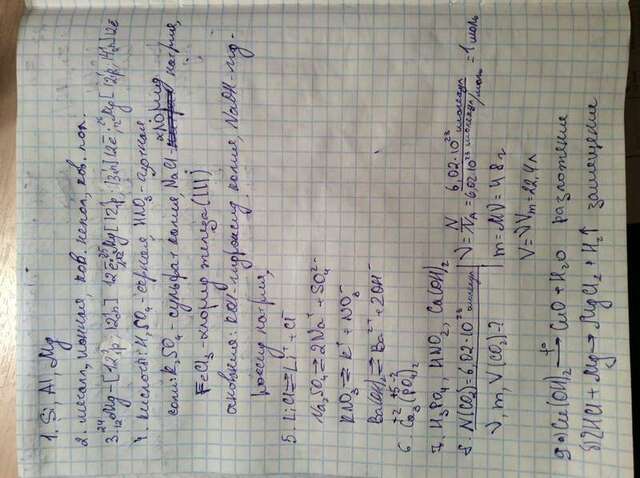 1. Si, Al, Mg
2 металл, ионная, ков. непол, ков. пол.
3. ²⁴₁₂Mg-[12¹₁p 12¹₀n] 12ē ²⁵₁₂Mg[12¹₁p 13¹₀n]12ē; ²⁶₁₂Mg[12¹₁p 14¹₀n]12ē
4 кислоты: H₂SO₄ - серная, HNO₃ - азотная
соли: K₂SO₄ - сульфат калия, NaCl - хлорид натрия,
FeCl₃ - хлорид железа (III)
основания: KOH - гидроксид калия, NaOH - гид-
роксид натрия,
5. LiCl ⇄ Li⁺ + Cl⁻
Na₂SO₄ ⇄ 2Na⁺ + SO₄²⁻
KNO₃ ⇄ K⁺ + NO₃⁻
Ba(OH)₂ ⇄ Ba²⁺ + 2OH⁻
6. Ca₃(PO₄)₂ +2 +5 -2
7. H₃PO₄, HNO₃, Ca(OH)₂
8. N(CO₂) = 6,02·10²³ молекул
ν, m, V(CO₂) - ?
ν = N/Nₐ = 6,02·10²³ молекул / 6,02·10²³ молекул/моль = 1 моль
m = Mν = 48 г
V = νVm = 22,4 л
9 а) Cu(OH)₂ →t° CuO + H₂O разложение
б) 2HCl + Mg → MgCl₂ + H₂↑ замещение